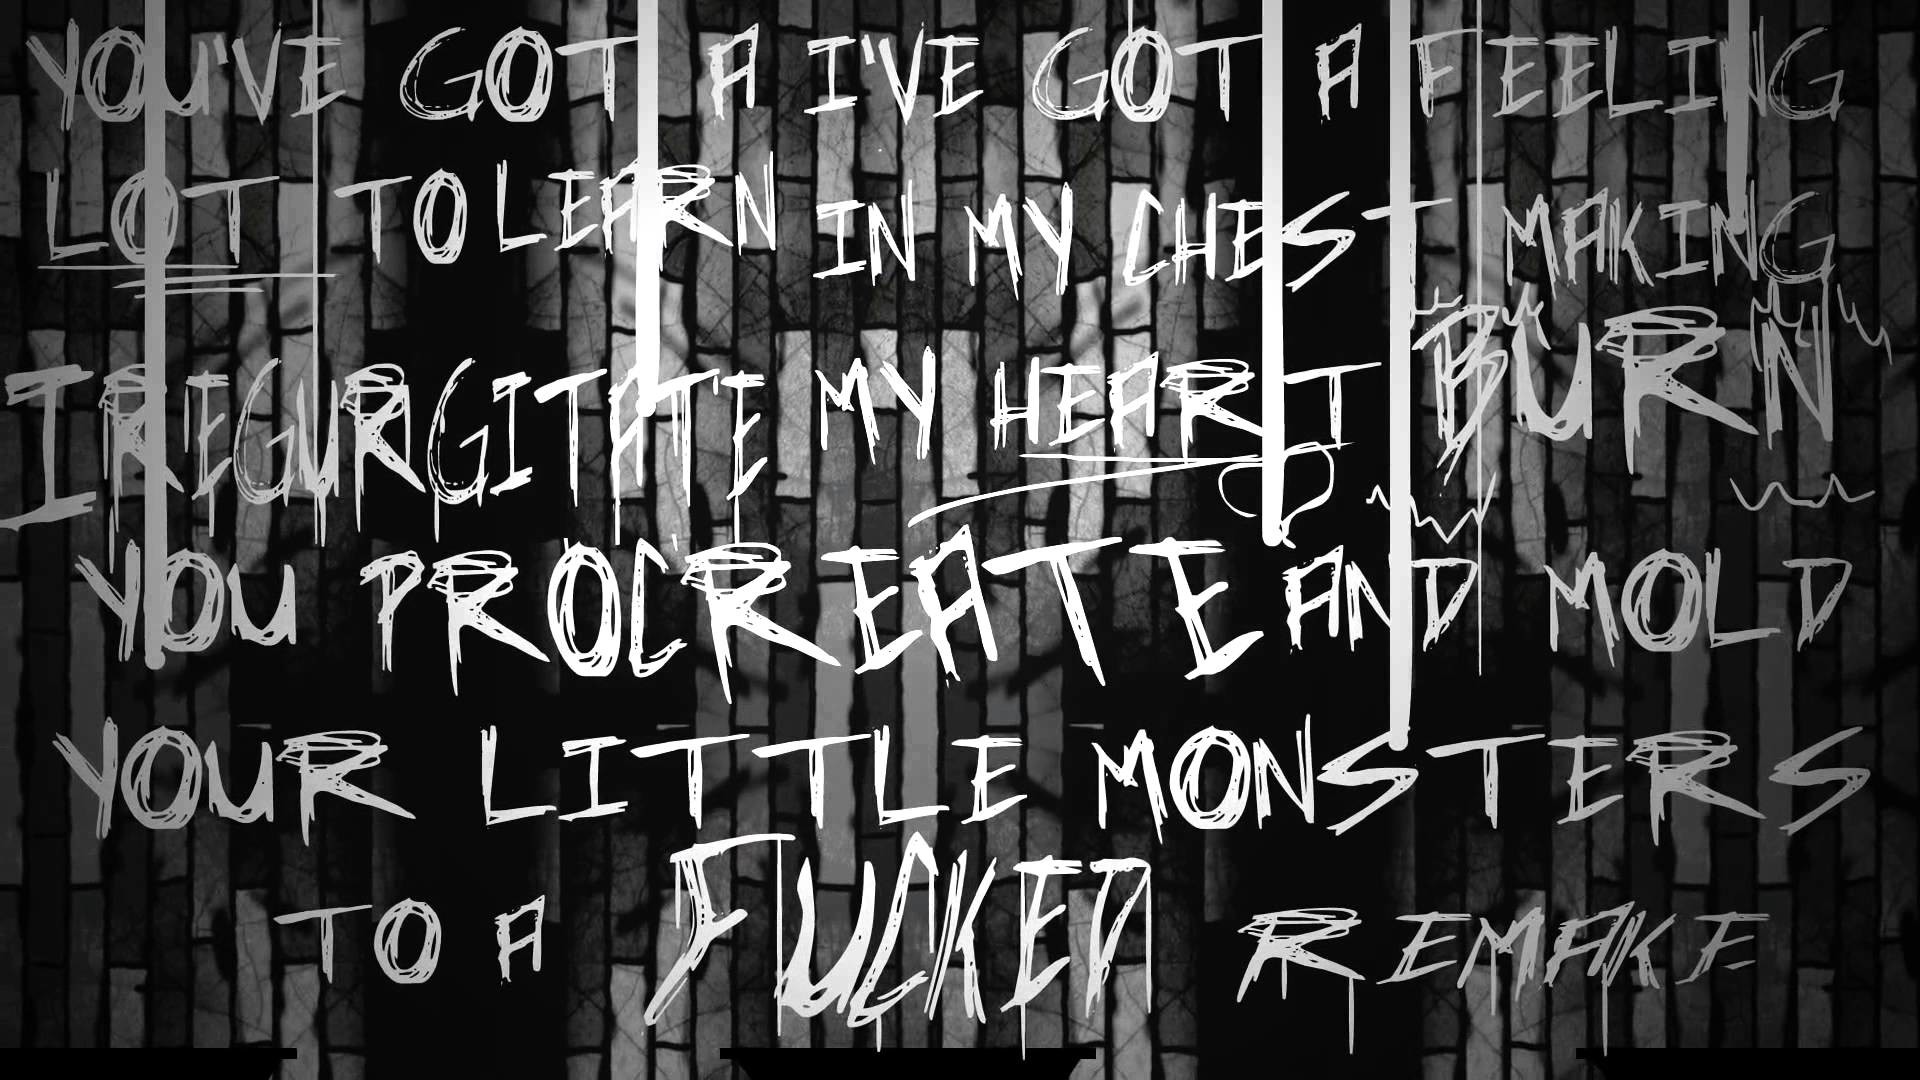 YOU'VE GOT A I'VE GOT A FEELING
LOT TO LEARN IN MY CHEST MAKING
I REGURGITATE MY HEART BURN
YOU PROCREATE AND MOLD
YOUR LITTLE MONSTERS
TO A FUCKED REMAKE